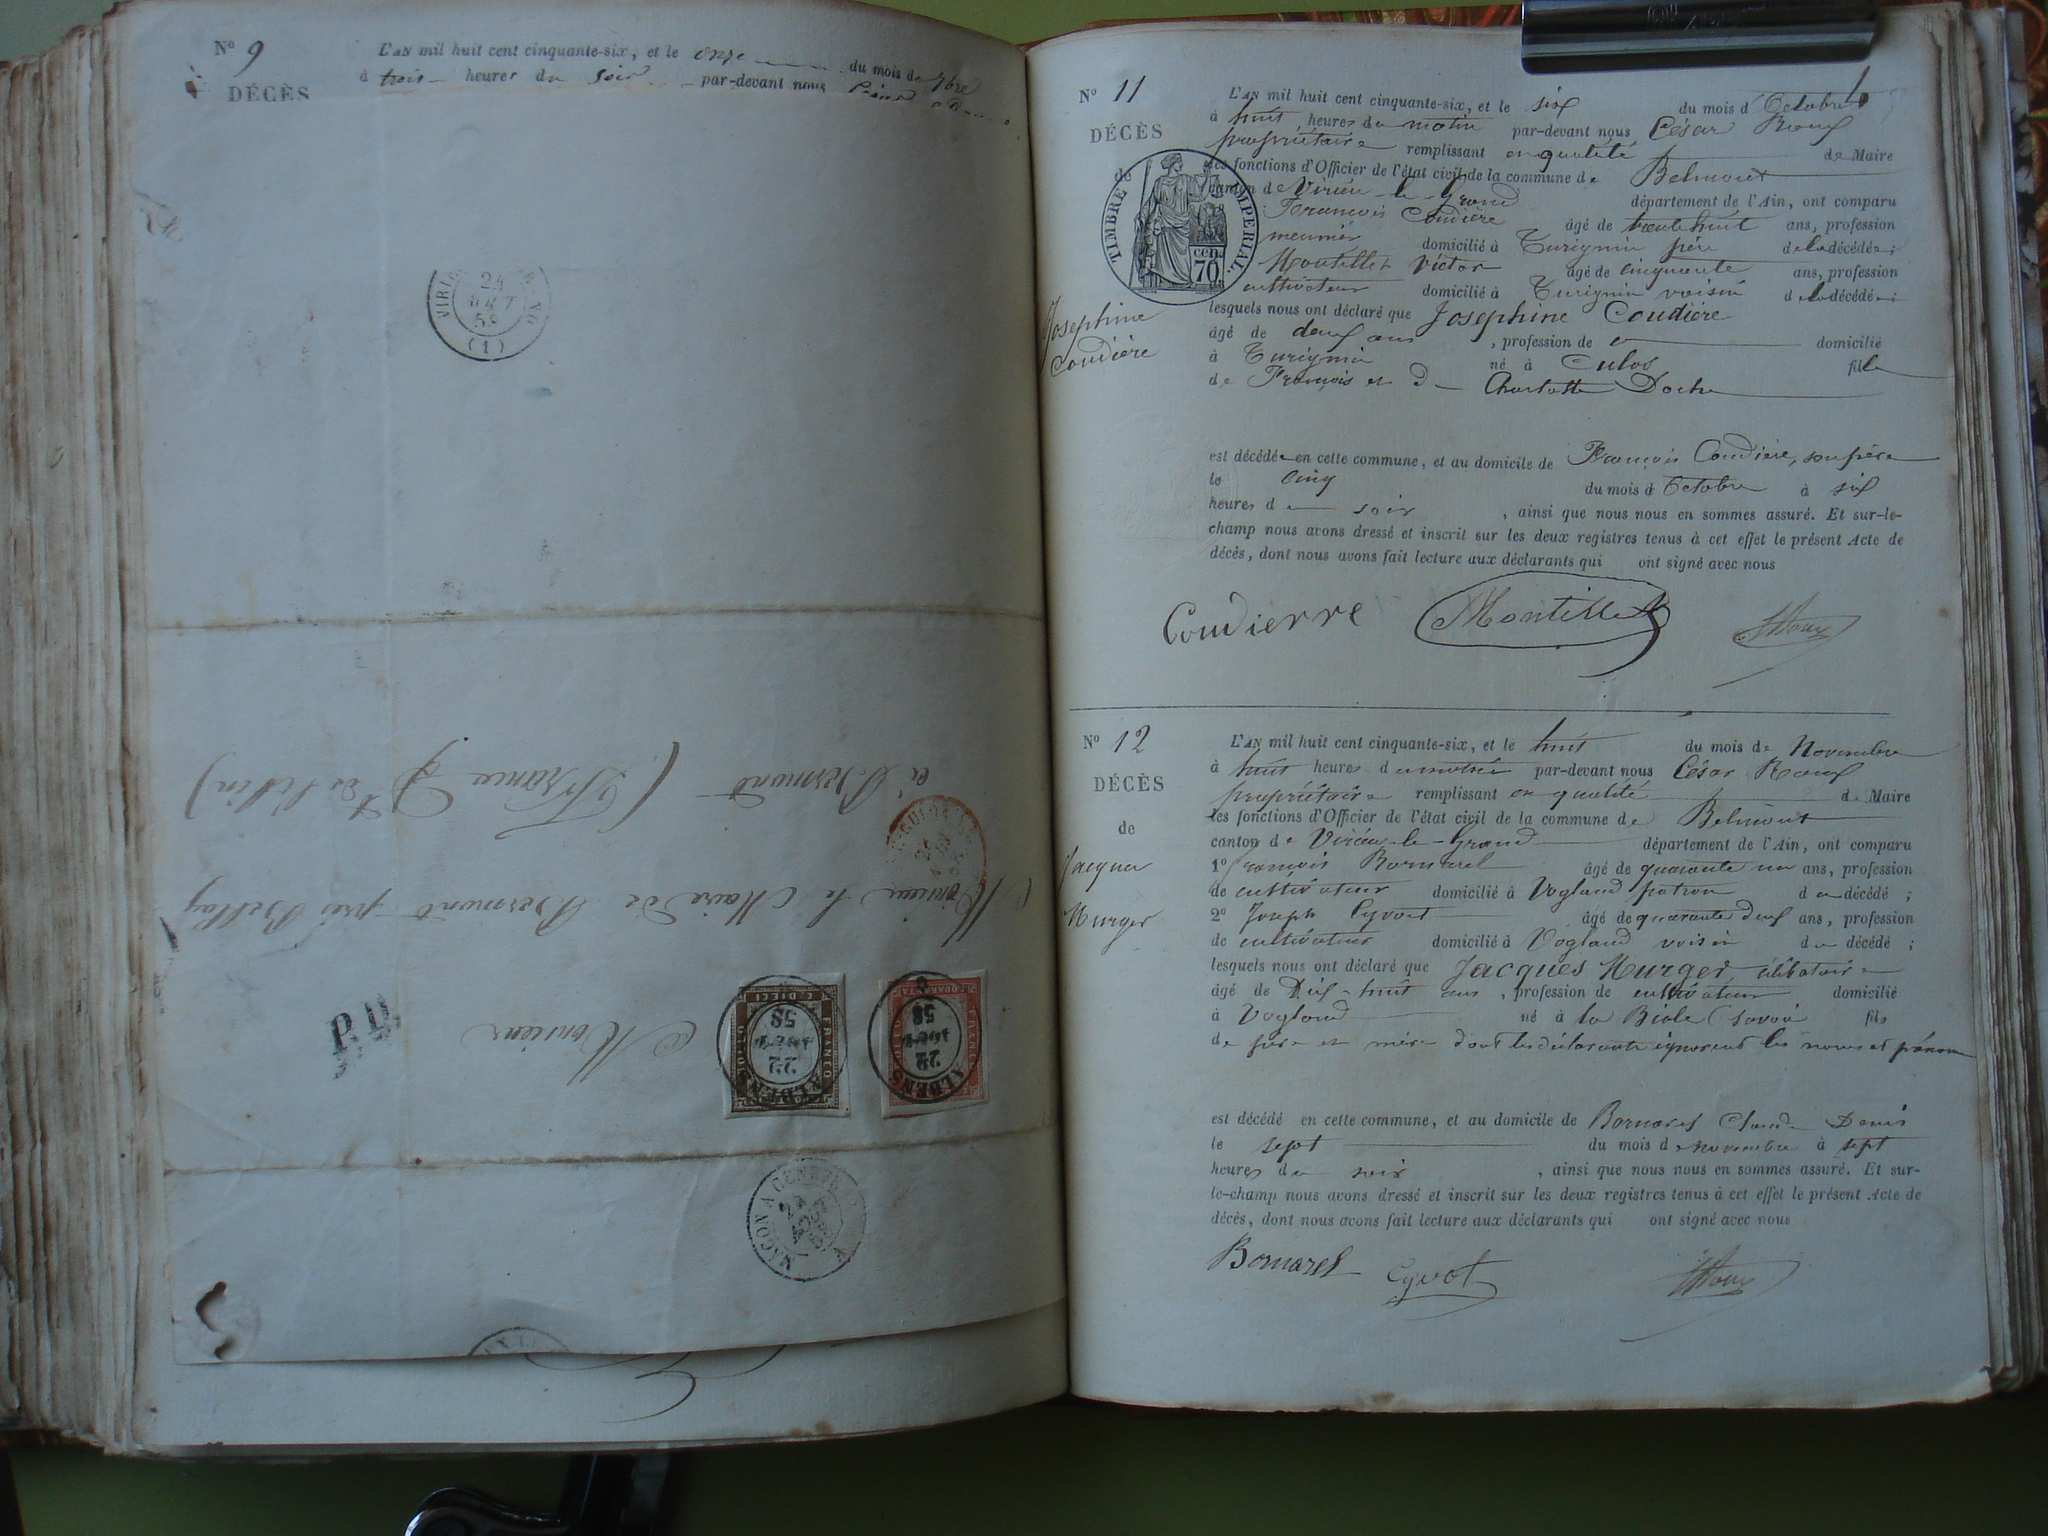 N° 9
DÉCÈS
L'AN mil huit cent cinquante-six, et le onze du mois de 7bre
à trois heures du soir par-devant nous
24
(1)
à Bermont (France Dt de l'Ain)
Monsieur le Maire de Bermont près Belley
Monsieur
P.D.
ALBENS
22
58
ALBENS
22
58
FRANCO
C. DIECI
C. QUARANTA
MACON A GENEVE
N° 11
DÉCÈS
de
Josephine
Coudière
TIMBRE IMPÉRIAL.
cen.
70
L'AN mil huit cent cinquante-six, et le six du mois d Octobre
à huit heures du matin par-devant nous César Roux
propriétaire remplissant en qualité de Maire
les fonctions d'Officier de l'état civil de la commune de Belmont
canton de Virieu-le-Grand département de l'Ain, ont comparu
François Coudière âgé de trente huit ans, profession
meunier domicilié à Turignin père de la décédée;
Montillet Victor âgé de cinquante ans, profession
cultivateur domicilié à Turignin voisin de la décédée;
lesquels nous ont déclaré que Josephine Coudière
âgé de deux ans, profession de domicilié
à Turignin né à Culoz fille
de François et de Charlotte Doche
est décédée en cette commune, et au domicile de François Coudière, son père
le cinq du mois d Octobre à six
heures du soir, ainsi que nous nous en sommes assuré. Et sur-le-
champ nous avons dressé et inscrit sur les deux registres tenus à cet effet le présent Acte de
décès, dont nous avons fait lecture aux déclarants qui ont signé avec nous
Coudierre Montillet Roux
N° 12
DÉCÈS
de
Jacques
Murger
L'AN mil huit cent cinquante-six, et le huit du mois de Novembre
à huit heures du matin par-devant nous César Roux
propriétaire remplissant en qualité de Maire
les fonctions d'Officier de l'état civil de la commune de Belmont
canton de Virieu-le-Grand département de l'Ain, ont comparu
1° François Bornarel âgé de quarante un ans, profession
de cultivateur domicilié à Vogland patron du décédé;
2° Joseph Cyvoct âgé de quarante deux ans, profession
de cultivateur domicilié à Vogland voisin du décédé;
lesquels nous ont déclaré que Jacques Murger, célibataire
âgé de Dix-huit ans, profession de cultivateur domicilié
à Vogland né à la Biole (Savoie fils
de père et mère dont les déclarants ignorent les noms et prénom
est décédé en cette commune, et au domicile de Bornarel Claude Denis
le sept du mois de novembre à sept
heures du soir, ainsi que nous nous en sommes assuré. Et sur-
le-champ nous avons dressé et inscrit sur les deux registres tenus à cet effet le présent Acte de
décès, dont nous avons fait lecture aux déclarants qui ont signé avec nous
Bornarel Cyvot Roux